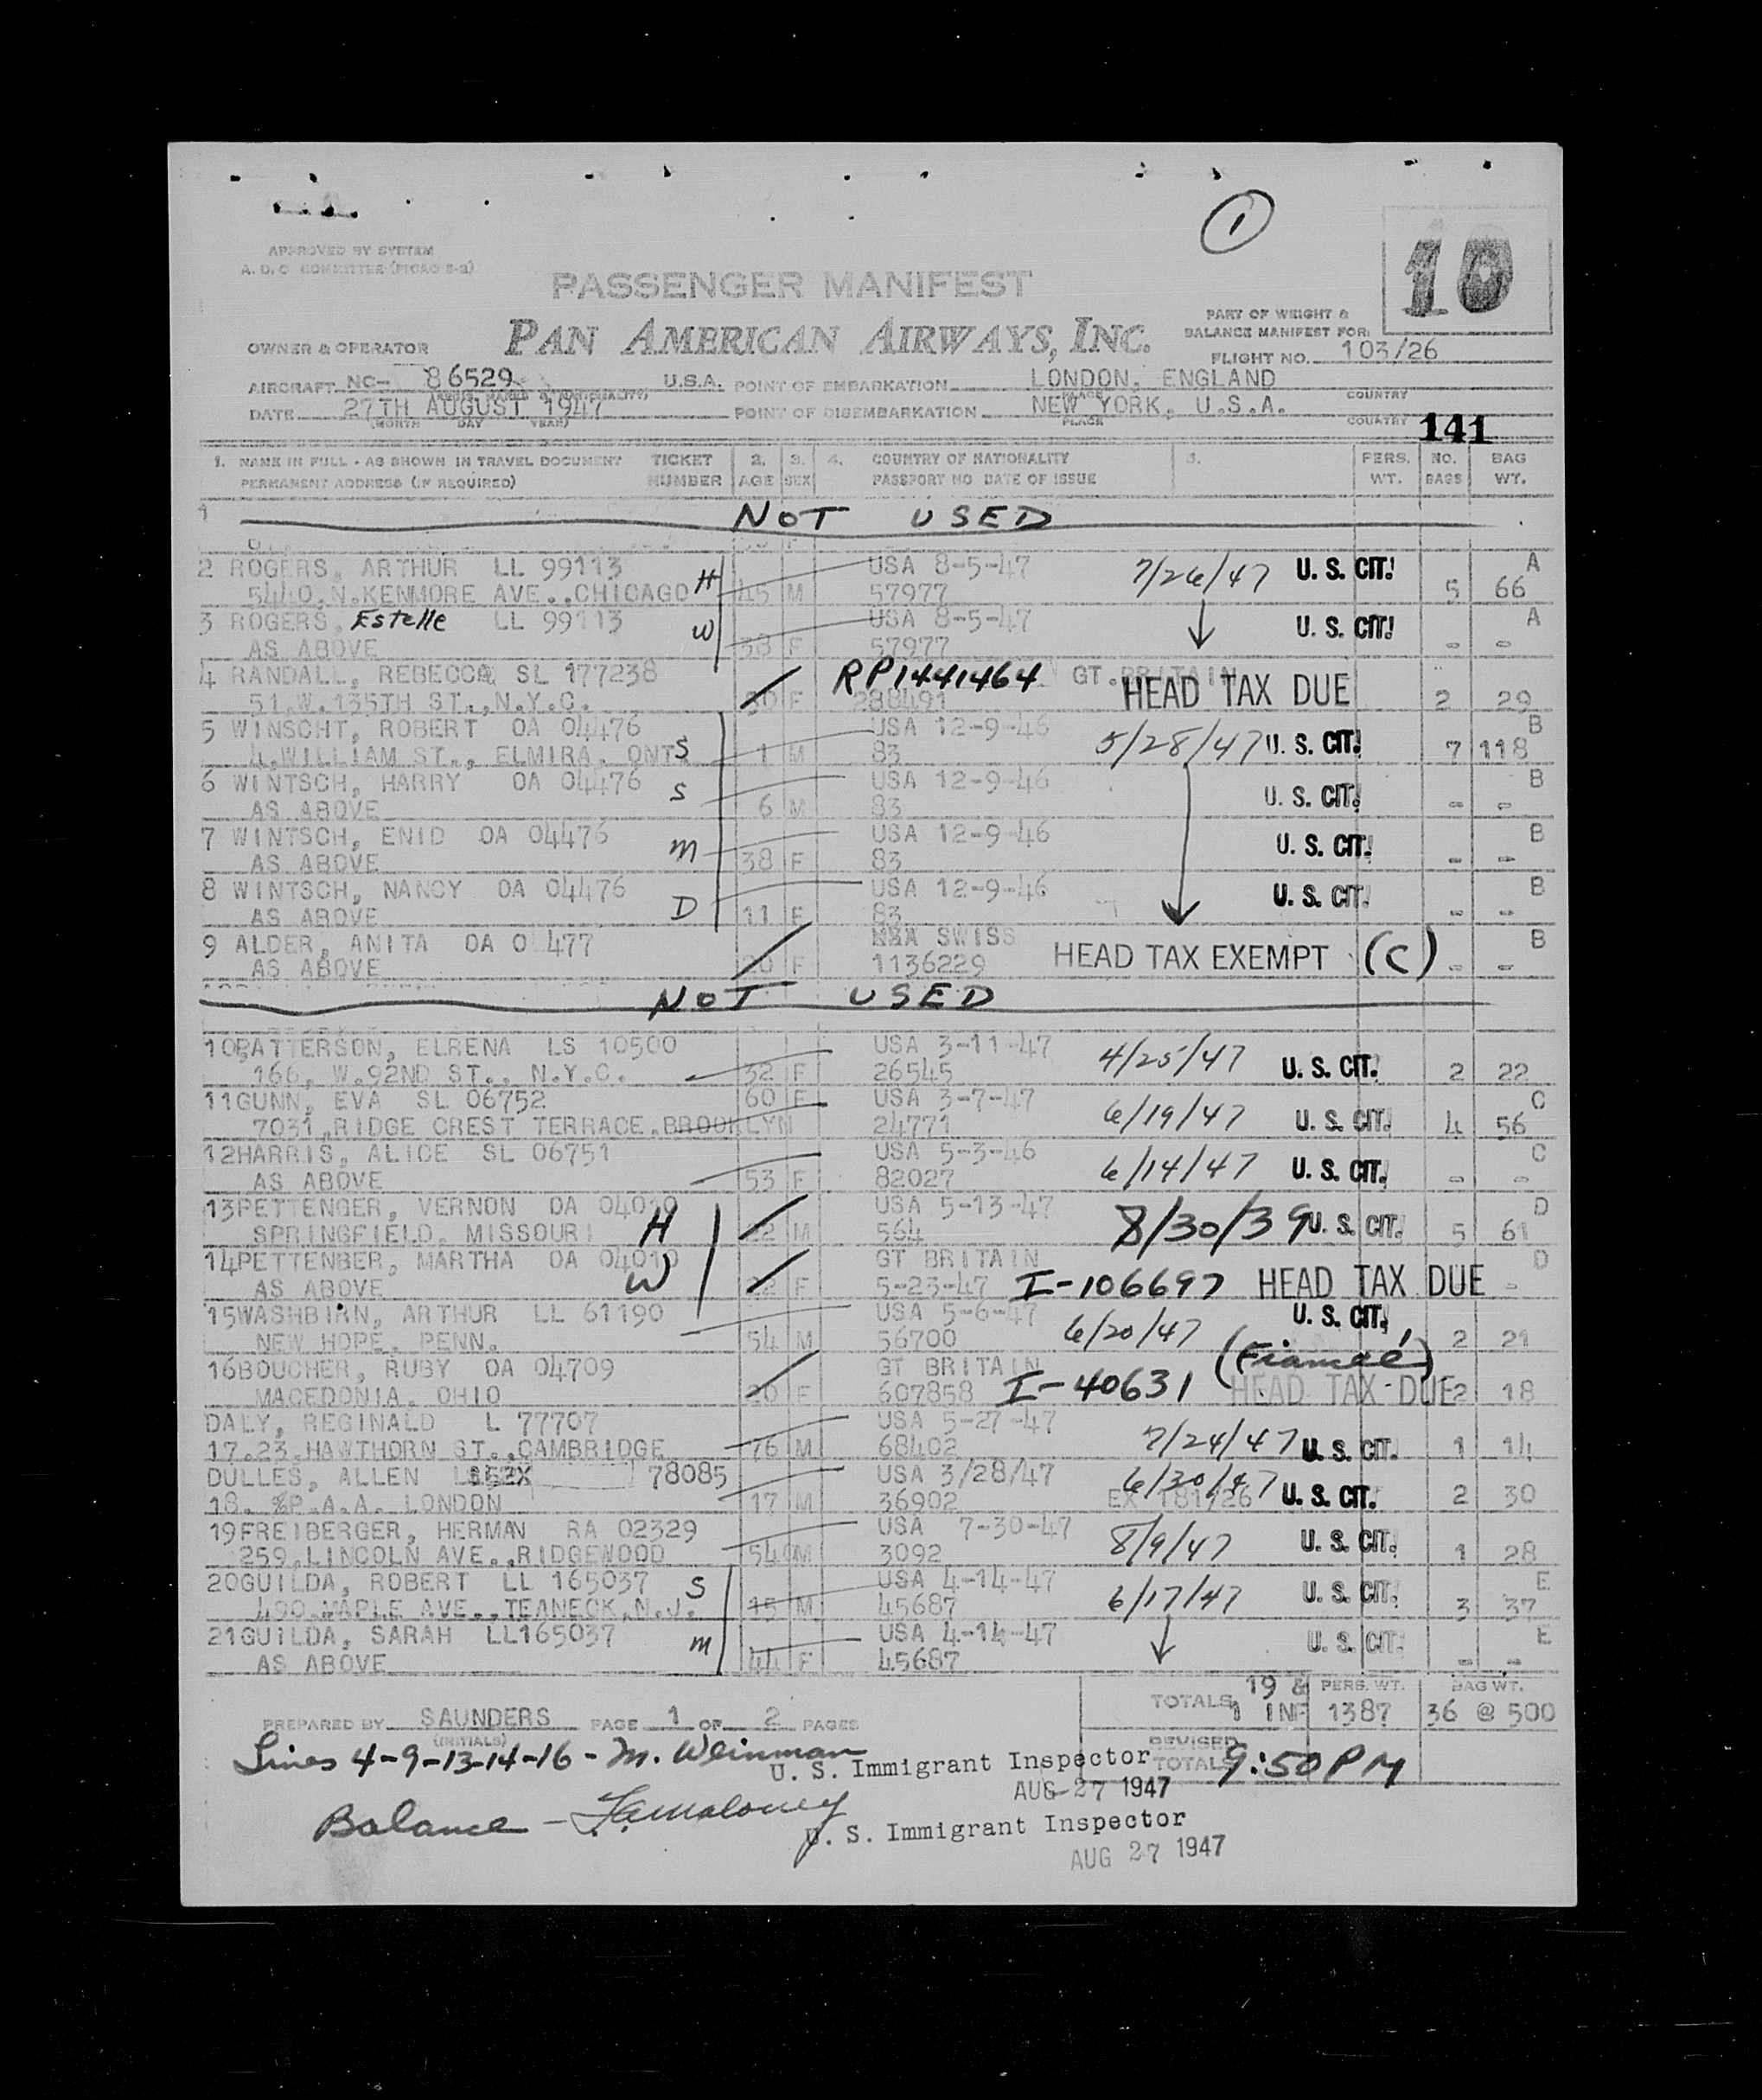 1
10
APPROVED BY SYSTEM
A. D. C COMMITTEE (PICAO 2-2)
PASSENGER MANIFEST
PAN AMERICAN AIRWAYS, INC.
PART OF WEIGHT &
BALANCE MANIFEST FOR:
OWNER & OPERATOR
FLIGHT NO. 103/26
AIRCRAFT NC- 86529 U.S.A. POINT OF EMBARKATION LONDON, ENGLAND
COUNTRY
DATE 27TH AUGUST 1947 POINT OF DISEMBARKATION NEW YORK, U.S.A.
(MONTH DAY YEAR) PLACE COUNTRY 141
1. NAME IN FULL - AS SHOWN IN TRAVEL DOCUMENT TICKET 2. 3. 4. COUNTRY OF NATIONALITY 5. PERS. NO. BAG
PERMANENT ADDRESS (IF REQUIRED) NUMBER AGE SEX PASSPORT NO DATE OF ISSUE WT. BAGS WT.
1 NOT USED
2 ROGERS, ARTHUR LL 99113 USA 8-5-47 7/26/47 U. S. CIT. A
5440.N.KENMORE AVE..CHICAGO H 45 M 57977 5 66
3 ROGERS, Estelle LL 99113 W USA 8-5-47 U. S. CIT. A
AS ABOVE 38 F 57977 - -
4 RANDALL, REBECCA SL 177238 RP1441464 GT.BRITAIN
51.W.135TH ST.,N.Y.C. 30 F 288491 HEAD TAX DUE 2 29
5 WINSCHT, ROBERT OA 04476 USA 12-9-46 B
4.WILLIAM ST., ELMIRA. ONT S 1 M 83 5/28/47 U. S. CIT. 7 118
6 WINTSCH, HARRY OA 04476 S USA 12-9-46 U. S. CIT. B
AS ABOVE 6 M 83 - -
7 WINTSCH, ENID OA 04476 M USA 12-9-46 U. S. CIT. B
AS ABOVE 38 F 83 - -
8 WINTSCH, NANCY OA 04476 D USA 12-9-46 U. S. CIT. B
AS ABOVE 11 F 83 - -
9 ALDER, ANITA OA 0 477 SWISS HEAD TAX EXEMPT (C) B
AS ABOVE 20 F 1136229 - -
NOT USED
10PATTERSON, ELRENA LS 10500 USA 3-11-47 4/25/47 U. S. CIT.
166, W.92ND ST., N.Y.C. 32 F 26545 2 22
11GUNN, EVA SL 06752 60 F USA 3-7-47 6/19/47 U. S. CIT. C
7031,RIDGE CREST TERRACE.BROOKLYN 24771 4 56
12HARRIS, ALICE SL 06751 USA 5-3-46 6/14/47 U. S. CIT. C
AS ABOVE 53 F 82027 - -
13PETTENGER, VERNON OA 04010 H USA 5-13-47 D
SPRINGFIELD. MISSOURI 22 M 564 8/30/39 U. S. CIT. 5 61
14PETTENBER, MARTHA OA 04010 W GT BRITAIN D
AS ABOVE 22 F 5-23-47 I-106697 HEAD TAX DUE -
15WASHBIRN, ARTHUR LL 61190 USA 5-6-47 U. S. CIT.
NEW HOPE. PENN. 54 M 56700 6/20/47 2 21
16BOUCHER, RUBY OA 04709 GT BRITAIN (Fiancée)
MACEDONIA. OHIO 20 F 607858 I-40631 HEAD TAX DUE 2 18
DALY, REGINALD L 77707 USA 5-27-47
17.23.HAWTHORN ST..CAMBRIDGE 76 M 68402 7/24/47 U. S. CIT. 1 14
DULLES, ALLEN 78085 USA 3/28/47 6/30/47
18. %P.A.A. LONDON 17 M 36902 EX 181/26 U. S. CIT. 2 30
19FREIBERGER, HERMAN RA 02329 USA 7-30-47 8/9/47 U. S. CIT.
259.LINCOLN AVE..RIDGEWOOD 54 M 3092 1 28
20GUILDA, ROBERT LL 165037 S USA 4-14-47 6/17/47 U. S. CIT. E
490.MAPLE AVE..TEANECK.N.J. 15 M 45687 3 37
21GUILDA, SARAH LL165037 M USA 4-14-47 U. S. CIT. E
AS ABOVE 44 F 45687 - -
TOTALS 19 & 1 INF PERS. WT. 1387 BAG WT. 36 @ 500
PREPARED BY SAUNDERS PAGE 1 OF 2 PAGES
(INITIALS)
REVISED TOTALS 9:50PM
Lines 4-9-13-14-16 - M. Weinman
U. S. Immigrant Inspector
AUG 27 1947
Balance - F.G. Maloney
U. S. Immigrant Inspector
AUG 27 1947